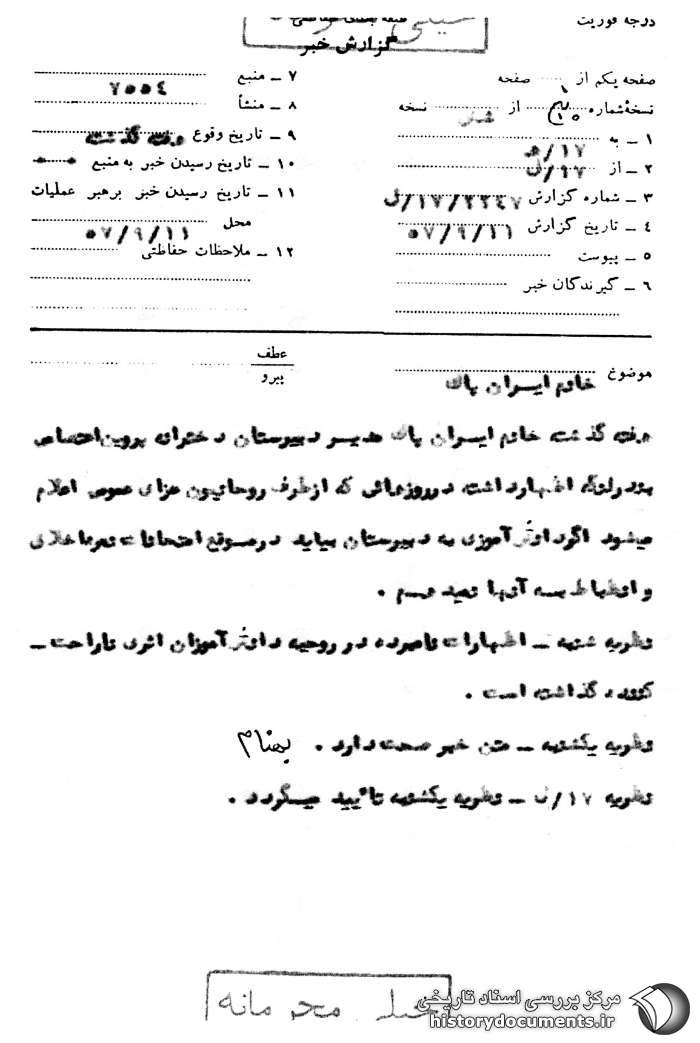 درجه فوریت
خیلی
گزارش خبر
صفحه یکم از ۱ صفحه
نسخهٔ شماره از نسخه
۱ ــ به ۱۷/ﻫ
۲ ــ از ۱۷/ل
۳ ــ شماره گزارش ۱۷/۲۲۴۷/ل
۴ ــ تاریخ گزارش ۵۷/۹/۱۱
۵ ــ پیوست
۶ ــ گیرندگان خبر
۷ ــ منبع ۷۵۵۴
۸ ــ منشأ
۹ ــ تاریخ وقوع هفته گذشته
۱۰ ــ تاریخ رسیدن خبر به منبع
۱۱ ــ تاریخ رسیدن خبر برهبر عملیات
محل ۵۷/۹/۱۱
۱۲ ــ ملاحظات حفاظتی
عطف
پیرو
موضوع خانم ایران پاک
هفته گذشته خانم ایران پاک مدیر دبیرستان دخترانه پروین اعتصامی
بندرلنگه اظهارداشت درروزهائی که ازطرف روحانیون عزای عمومی اعلام
میشود اگردانش‌آموزی به دبیرستان نیاید درموقع امتحانات نمره اخلاق
و انظباط به آنها نمیدهم .
نظریه شنبه ــ اظهارات نامبرده در روحیه دانش‌آموزان اثری ناراحت ــ
کننده گذاشته است .
نظریه یکشنبه ــ متن خبر صحت دارد . بهنام
نظریه ۱۷/ل ــ نظریه یکشنبه تائید میگردد .
خیلی محرمانه
مرکز بررسی اسناد تاریخی
historydocuments.ir